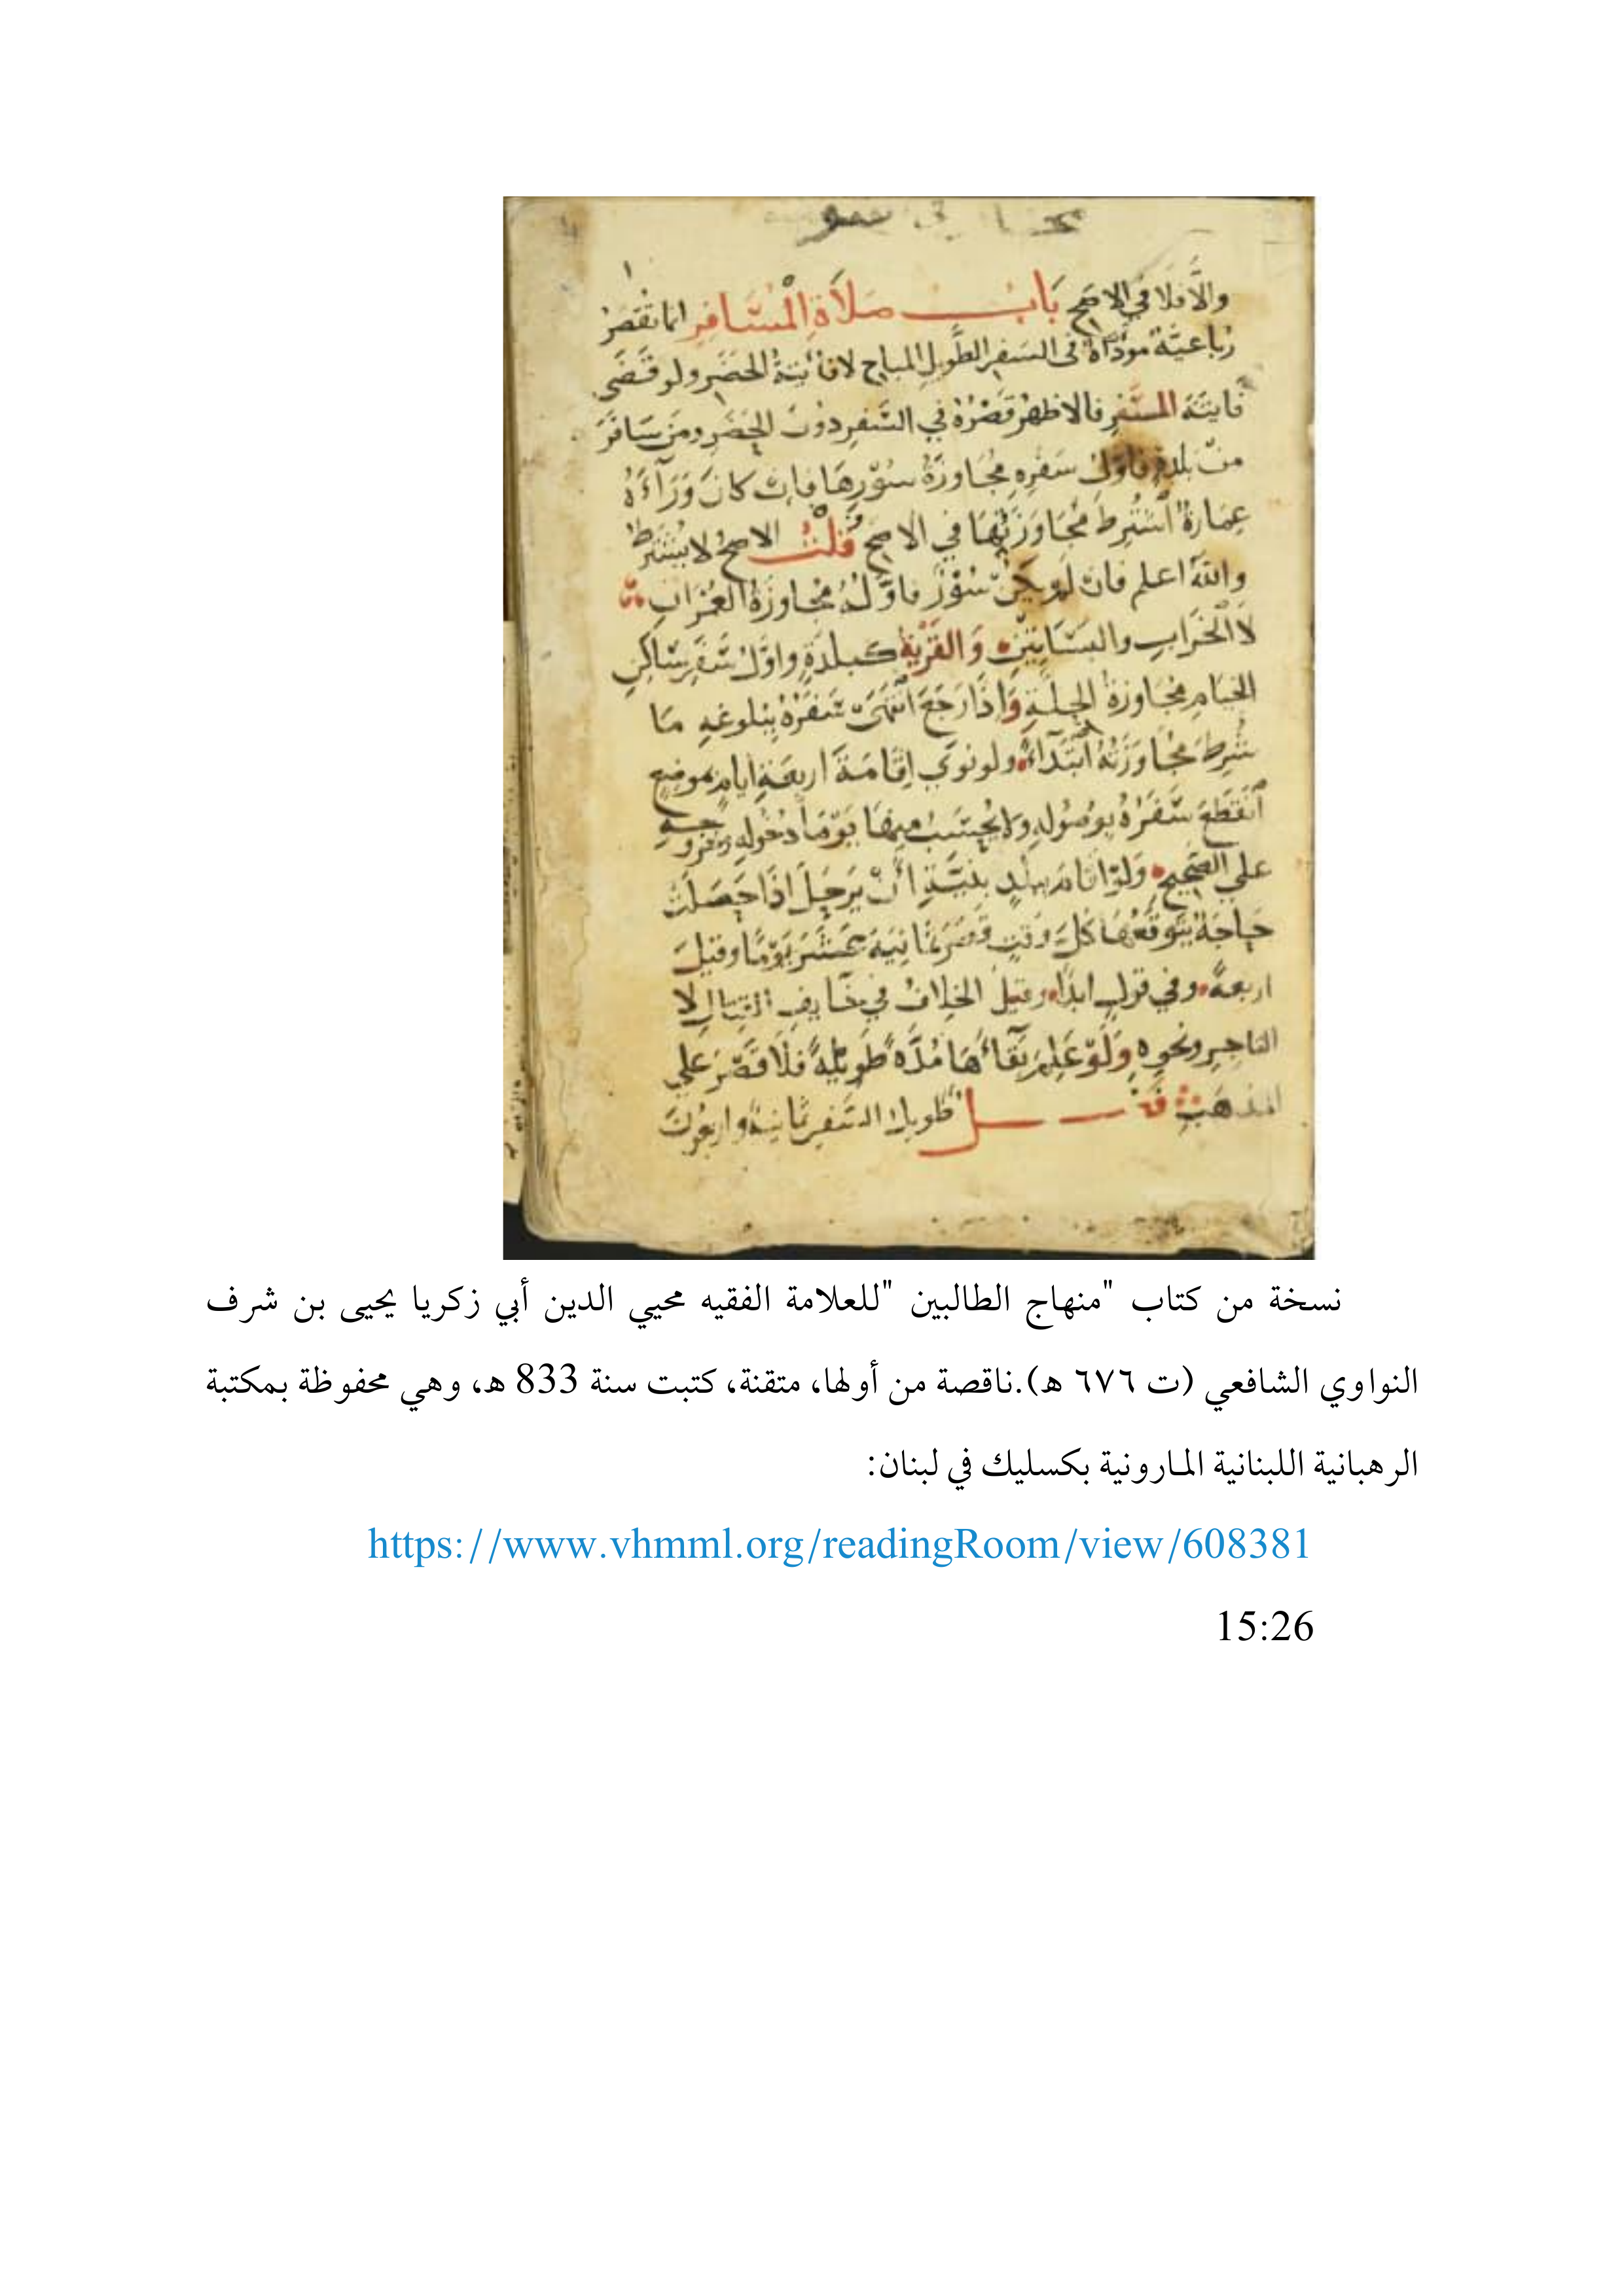 والا فلا في الاصح بَابُ صَلَاةِ الْمُسَافِرِ انما تُقْصَرُ
رُباعيَّة مودَّاة في السفر الطَّويل المباح لا فائتة الحَضَر ولو قَضَى
فايتَة السَّفر فالاظهر قَصْرُهُ في السَّفر دُونَ الحَضَر ومَن سَافَرَ
منْ بلدة فاوّل سَفَرِه مُجَاوَزَةُ سُوْرِهَا فان كانَ وَرَآءَهُ
عِمَارَةٌ اشتُرِطَ مُجَاوَزَتُهَا في الاصح قُلْتُ الاصحُ لا يشترط
والله اعلم فان لَمْ يَكُنْ سُوْرٌ فاوَّلُهُ مُجَاوَزَةُ العُمْرَانِ
لا الْخَرَابِ والبَسَاتِيْن وَالقَرْيَةُ كبلدَةٍ واوَّلُ سَفَرِ سَاكِنِ
الخيام مُجَاوَزَةُ الحِلَّةِ وَاِذَا رَجَعَ انْتَهَى سَفَرُهُ بِبُلوغهِ مَا
شُرِطَ مُجَاوَزَتُهُ ابْتِدَآءً ولو نوَي اِقَامَةَ اربعَةِ ايامٍ بموضع
انْقَطَعَ سَفَرُهُ بوصُوله ولا يُحْسَبُ مِنهَا يَوْمَا دُخُولِهِ وخروجه
علي الصحيح وَلَوْ اقَامَ ببلدٍ بِنيَّةِ أَنْ يَرحَلَ اذَا حَصَلَتْ
حَاجَةٌ يتوقَّعُهَا كُلَّ وقتٍ قَصَرَ ثمَانِيَةَ عَشَرَ يَوْمًا وقيلَ
اربعةً وفي قول ابدًا وقيل الخلافُ في خَايف القتال لا
التاجِر ونحوه وَلَوْ عَلِمَ بَقَاءَهَا مُدَّةً طَوِيْلَةً فَلَا قَصْرَ علي
المذهَبِ فَصْــــل طويل السَّفر ثمانيةٌ واربعُونَ
نسخة من كتاب "منهاج الطالبين "للعلامة الفقيه محيي الدين أبي زكريا يحيى بن شرف
النواوي الشافعي (ت ٦٧٦ هـ).ناقصة من أولها، متقنة، كتبت سنة 833 هـ، وهي محفوظة بمكتبة
الرهبانية اللبنانية المارونية بكسليك في لبنان:
https://www.vhmml.org/readingRoom/view/608381
15:26